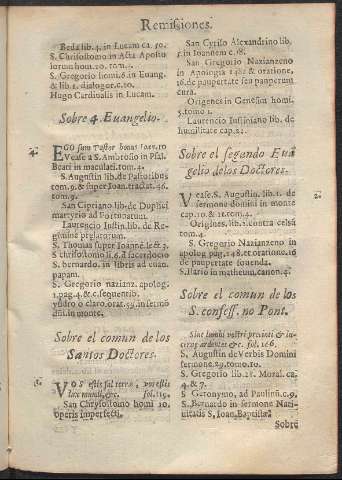 Remissiones.
Beda lib. 4. in Lucam ca. 50.
S. Chrisostomo in Acta Aposto
lorum homi. 20. tom. 4.
S. Gregorio homi. 6. in Euang.
& lib. 1. dialogor. c. 10.
Hugo Cardinalis in Lucam.
Sobre 4. Euangelio.
4.
EGO sum Pastor bonus Ioan. 10
Vease a S. Ambrosio in Psal.
Beati in maculati. tom. 4.
S. Augustin lib. de Pastoribus
tom. 9. & super Ioan. tractat. 46.
tom. 9.
San Cipriano lib. de Duplici
martyrio ad Fortunatum.
Laurencio Iustin. lib. de Re-
gimine prælatorum.
S. Thomas super Ioanné. le. & 3.
S chrisostomo li. 6. d sacerdocio
S. bernardo. in libris ad euan.
papam.
S. Gregorio nazianz. apolog.
1. pag. 4. & c. sequentib.
ysidro o claro. orat. 59. in sermó
dñi. in monte.
Sobre el comun de los
Santos Doctores.
VOS estis sal terræ, vos estis
lux mundi, &c. fol. 115.
San Chrysostomo homi 10.
operis imperfecti.
San Cyrilo Alexandrino lib.
5. in Ioannem c. 18.
San Gregorio Nazianzeno
in Apologia 148. & oratione,
16. de paupertate seu pauperum
cura.
Origines in Genesim homi.
5. tomo 1.
Laurencio Iustiniano lib. de
humilitate cap. 21.
Sobre el segundo Euã
gelio de los Doctores.
2.
Vease. S. Augustin. lib. 1. de
sermone domini in monte
cap. 10. & 11. tom. 4.
Origines, lib. 1. contra celsũ
tom. 4.
S. Gregorio Nazianzeno in
apolog pag. 148. et oratione. 16
de paupertate fouenda.
S. Ilario in matheum, canon. 4.
Sobre el comun de los
S. confess. no Pont.
Sint lumbi vestri precincti & lu-
cernæ ardentes & c. fol. 126.
S. Augustin de Verbis Domini
sermone. 29. tomo. 10.
S. Gregorio lib. 28. Moral. ca.
4. & 7.
S Geronymo, ad Paulinũ. c. 9.
S. Bernardo in sermone Nati-
uitatis S, Ioan, Baptistæ.
Sobre